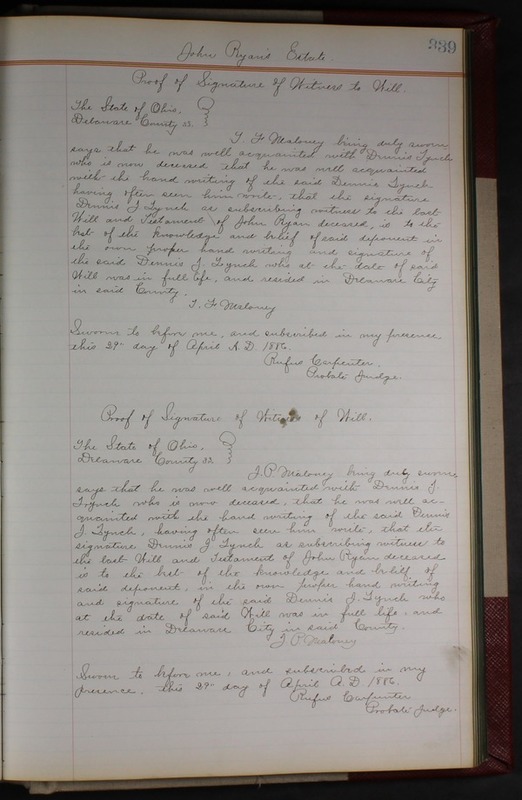 339
John Ryan's Estate.
Proof of Signature of Witness to Will.
The State of Ohio,
Delaware County ss.
T. F. Maloney being duly sworn
says that he was well acquainted with Dennis Lynch
who is now deceased, that he was well acquainted
with the hand writing of the said Dennis Lynch
having often seen him write, that the signature
Dennis J Lynch as subscribing witness to the last
Will and Testament of John Ryan deceased, is to the
best of the knowledge and belief of said deponent in
the own proper hand writing and signature of
the said Dennis J. Lynch who at the date of said
Will was in full life, and resided in Delaware City
in said County.
T. F. Maloney
Sworn to before me, and subscribed in my presence
this 29" day of April A.D. 1886.
Rufus Carpenter.
Probate Judge.
Proof of Signature of Witness of Will.
The State of Ohio,
Delaware County ss.
J. P. Maloney being duly sworn,
says that he was well acquainted with Dennis J.
Lynch who is now deceased, that he was well ac-
quainted with the hand writing of the said Dennis
J. Lynch, having often seen him write, that the
signature Dennis J Lynch as subscribing witness to
the last Will and Testament of John Ryan deceased
is to the best of the knowledge and belief of
said deponent, in the own proper hand writing
and signature of the said Dennis J. Lynch who
at the date of said Will was in full life, and
resided in Delaware City in said County.
J. P. Maloney
Sworn to before me, and subscribed in my
presence, this 29" day of April A.D. 1886.
Rufus Carpenter
Probate Judge.